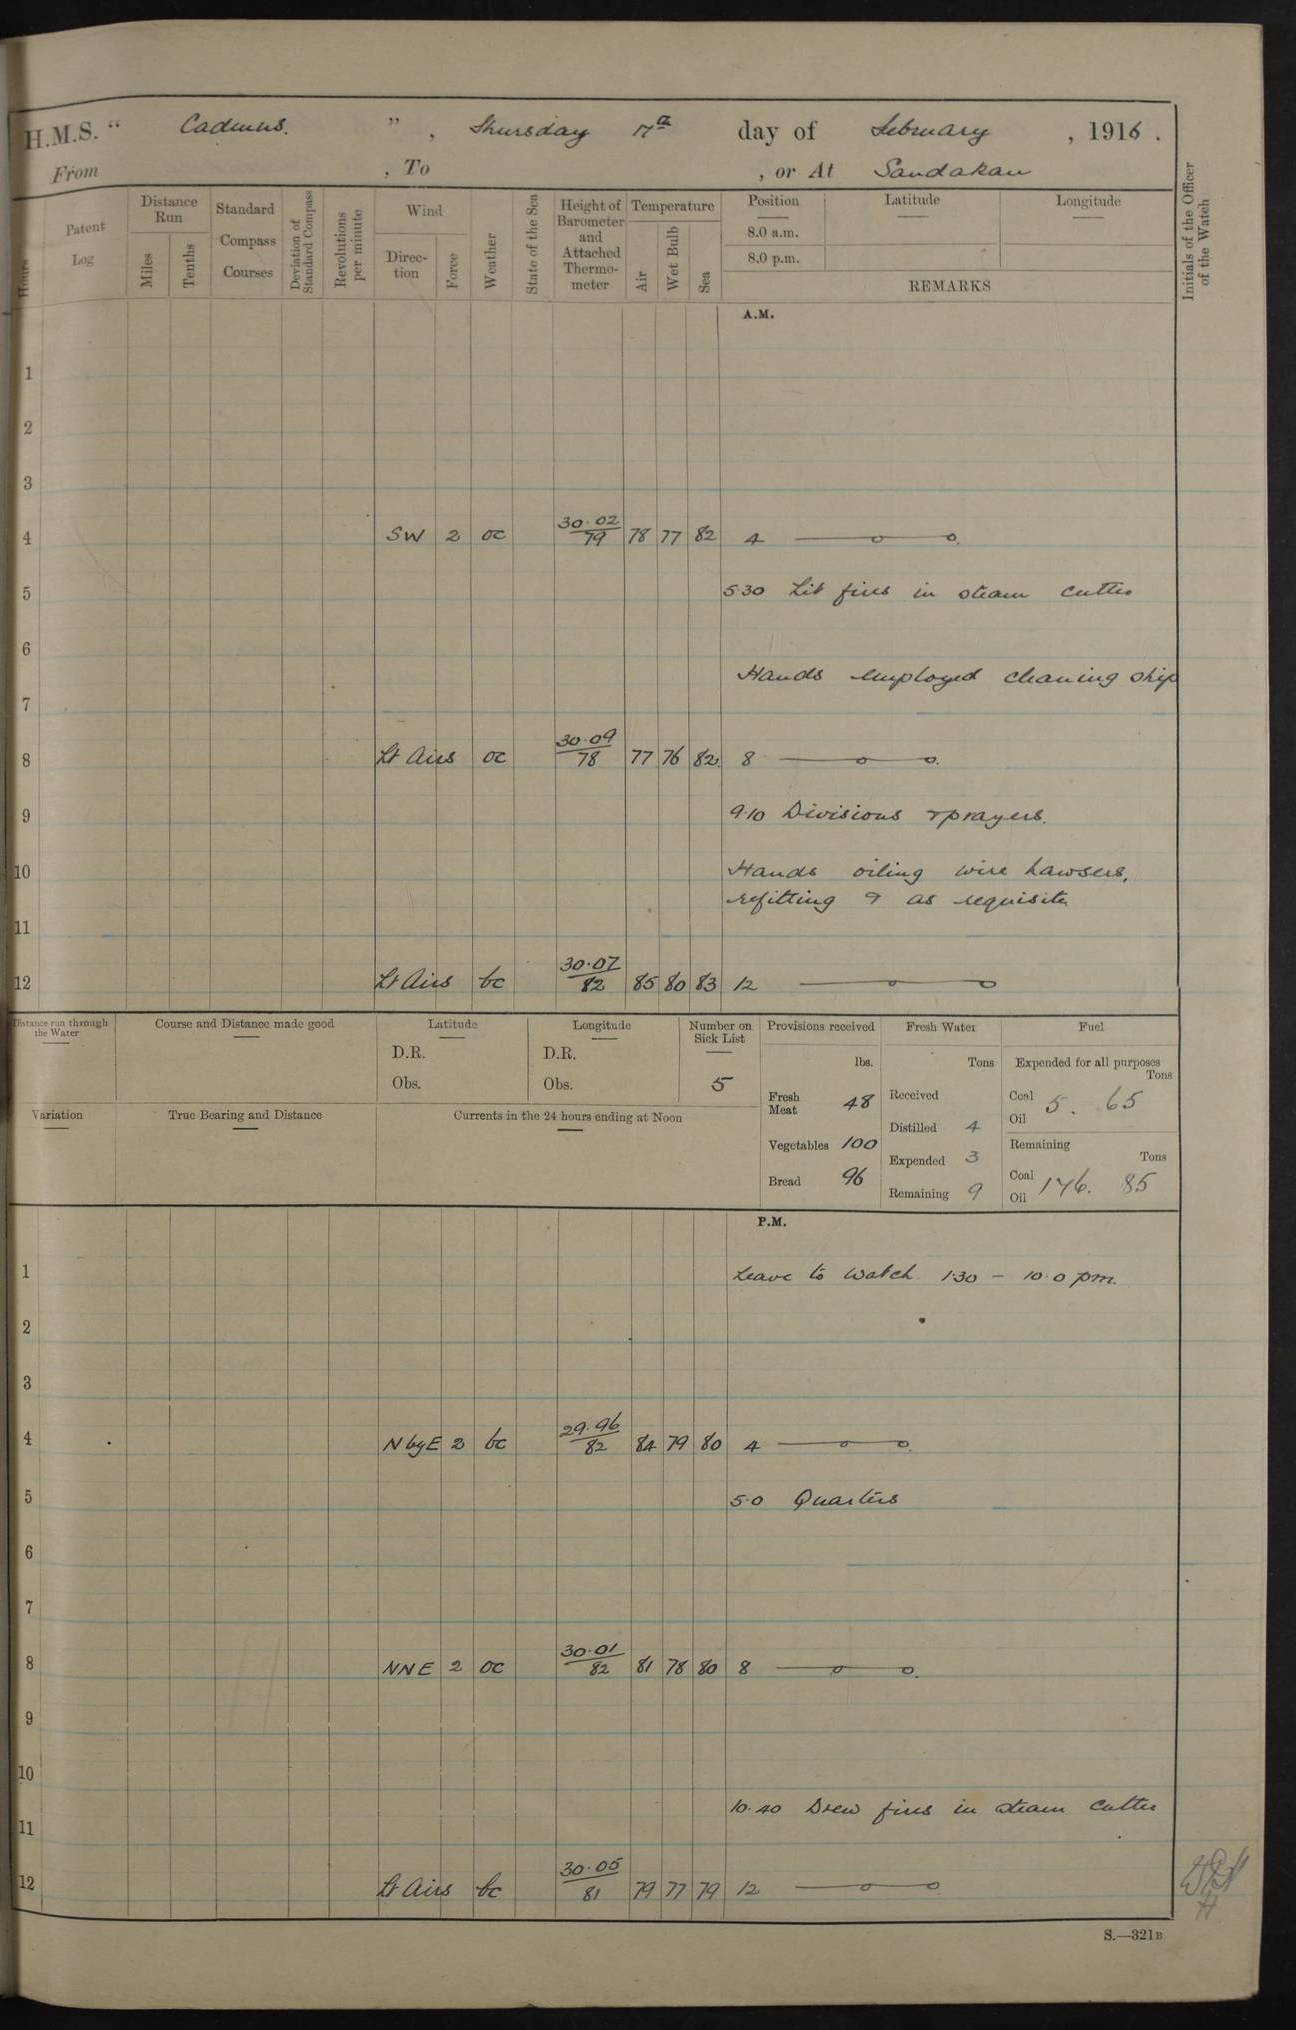 H.M.S. " Cadmus. " , Thursday 17th day of February , 1916 .
From , To , or At Sandakan
Hours Patent Log Distance Run Miles Tenths Standard Compass Courses Deviation of Standard Compass Revolutions per minute Wind Direc-tion Force Weather State of the Sea Height of Barometer and Attached Thermo-meter Temperature Air Wet Bulb Sea Position 8.0 a.m. 8.0 p.m. Latitude Longitude REMARKS Initials of the Officer of the Watch
A.M.
1
2
3
4 SW 2 oc 30.02/79 78 77 82 4
5 5.30 Lit fires in steam cutter
6
Hands employed cleaning ship
7
8 Lt Airs oc 30.09/78 77 76 82 8
9 9.10 Divisions & prayers.
10 Hands oiling wire hawsers,
refitting & as requisite
11
12 Lt Airs bc 30.07/82 85 80 83 12
Distance run through the Water Course and Distance made good Latitude Longitude Number on Sick List Provisions received Fresh Water Fuel
D.R. D.R. lbs. Tons Expended for all purposes Tons
Obs. Obs. 5 Fresh Meat 48 Received Coal Oil 5. 65
Variation True Bearing and Distance Currents in the 24 hours ending at Noon Distilled 4
Vegetables 100 Expended 3 Remaining Tons
Bread 96 Remaining 9 Coal Oil 176. 85
P.M.
1 Leave to Watch 1.30 - 10.0 pm.
2
3
4 N by E 2 bc 29.96/82 84 79 80 4
5 5.0 Quarters
6
7
8 NNE 2 oc 30.01/82 81 78 80 8
9
10
10.40 Drew fires in steam cutter
11
12 Lt Airs bc 30.05/81 79 77 79 12
S.—321B